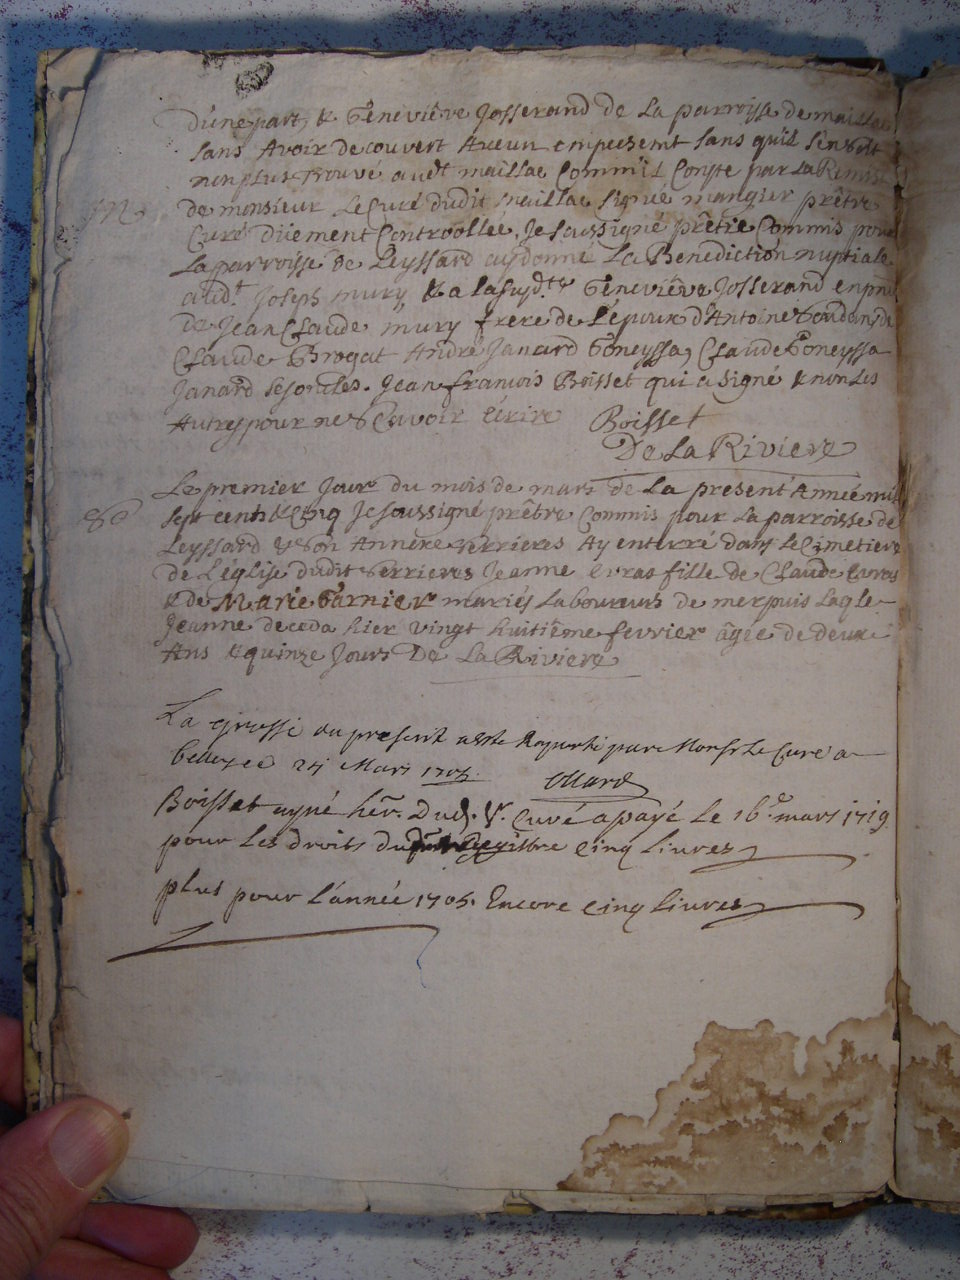 d'une part, & Geneviêve Josserand de La parroisse de maillac
sans Avoir decouvert Aucun empeschemt sans quil s'en soit
non plus trouvé audt maillac Comm'il Conste par La Remise
m de monsieur Le Curé dudit maillac signé mangier prêtre
Curé düement Controollée, Je soussigné prêtre Commis pour
La parroisse de Leyssard ay donné La Benediction nuptiale
audt Joseph mury & a la susdte Geneviêve Josserand en pnce
de Jean Claude mury frere de L'époux d'Antoine
Claude Brogat André Janard Goneyssa, Claude Goneyssa
Janard Jean francois Boisset qui a signé & non Les
Autres pour ne sCavoir écrire Boisset
De La Riviere
Le premier Jour du mois de mars de La presente Année mil
sept cents & Cinq Je soussigné prêtre Commis pour La parroisse de
Leyssard & son Annexe serrieres Ay enterré dans Le Cimetiere
de L'église dudit serrieres Jeanne evras fille de Claude evras
& de Marie Garnier mariés Laboureurs de merpuis Laqle
Jeanne deceda hier vingt huitiême fevrier âgée de deux
Ans & quinze Jours De La Riviere
La grosse du present a esté Raporté par Monsr Le Curé a
mars 1705. Ollard
Boisset ayné her. Dud. Sr. Curé a payé Le 16.e mars 1719
pour Les droits du Registre cinq Livres
plus pour L'année 1705. Encore cinq Livres